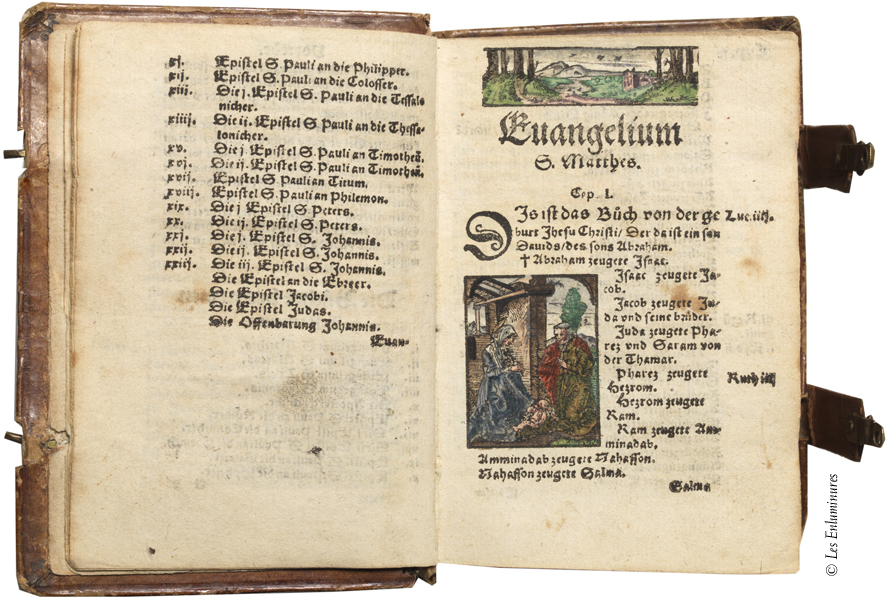 xj. Epistel S. Pauli an die Philipper.
xij. Epistel S. Pauli an die Colosser.
xiii. Die j. Epistel S. Pauli an die Tessalo
nicher.
xiiij. Die ii. Epistel S. Pauli an die Thessa-
lonicher.
xv. Die j. Epistel S. Pauli an Timotheū.
xvj. Die ij. Epistel S. Pauli an Timotheū.
xvij. Epistel S. Pauli an Titum.
xviij. Epistel S. Pauli an Philemon.
xix. Die j Epistel S. Peters.
xx. Die ij. Epistel S. Peters.
xxj. Die j. Epistel S. Johannis.
xxij. Die ij. Epistel S. Johannis.
xxiij. Die iij. Epistel S. Johannis.
Die Epistel an die Ebreer.
Die Epistel Jacobi.
Die Epistel Judas.
Die Offenbarung Johannis.
Euan-
Euangelium
S. Matthes.
Cap. I.
DJs ist das Bůch von der ge
burt Jhesu Christi/ Der da ist ein son
Dauids/des sons Abraham.
† Abraham zeugete Jsaac.
Jsaac zeugete Ja-
cob.
Jacob zeugete Ju-
da vnd seine brüder.
Juda zeugete Pha-
rez vnd Saram von
der Thamar.
Pharez zeugete
Hezrom.
Hezrom zeugete
Ram.
Ram zeugete Am-
minadab.
Amminadab zeugete Nahasson.
Nahasson zeugete Salma.
Salma
Luc. iiij.
Ruth iiij
© Les Enluminures